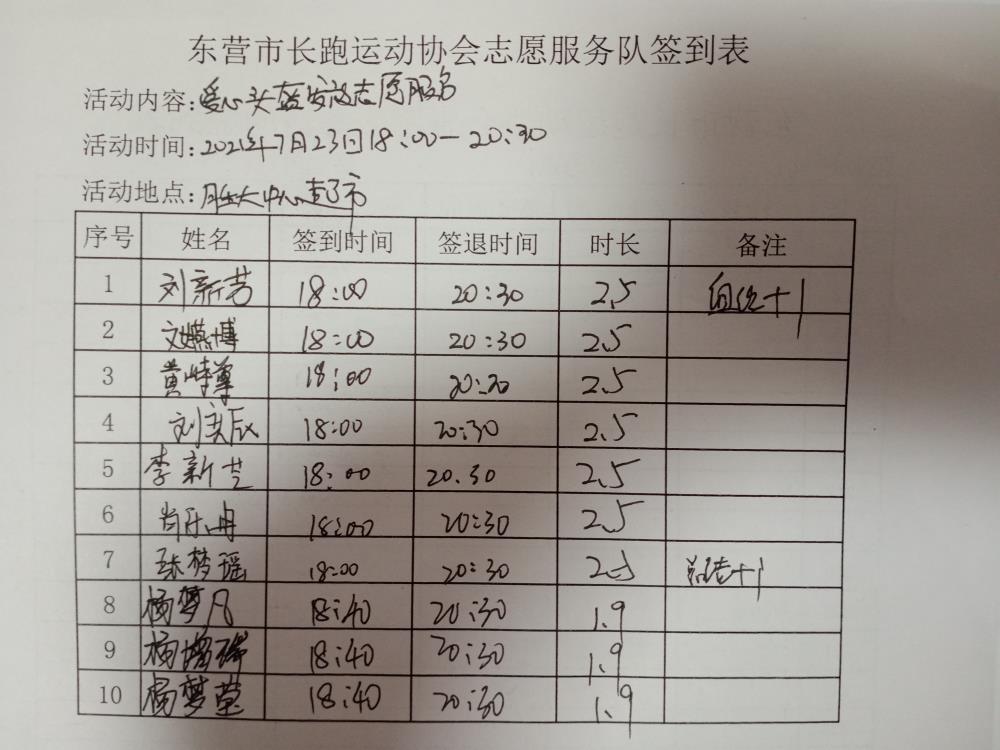 东营市长跑运动协会志愿服务队签到表
活动内容:爱心头盔发放志愿服务
活动时间:2021年7月23日18:00—20:30
活动地点:胜大中心超市
序号 姓名 签到时间 签退时间 时长 备注
1 刘新芳 18:00 20:30 2.5 +1
2 博 18:00 20:30 2.5
3 黄 18:00 20:30 2.5
4 刘奕辰 18:00 20:30 2.5
5 李新芝 18:00 20.30 2.5
6 肖 18:00 20:30 2.5
7 梦瑶 18:00 20:30 2.5 +1
8 杨梦凡 18:40 20:30 1.9
9 杨增 18:40 20:30 1.9
10 杨梦莹 18:40 20:30 1.9